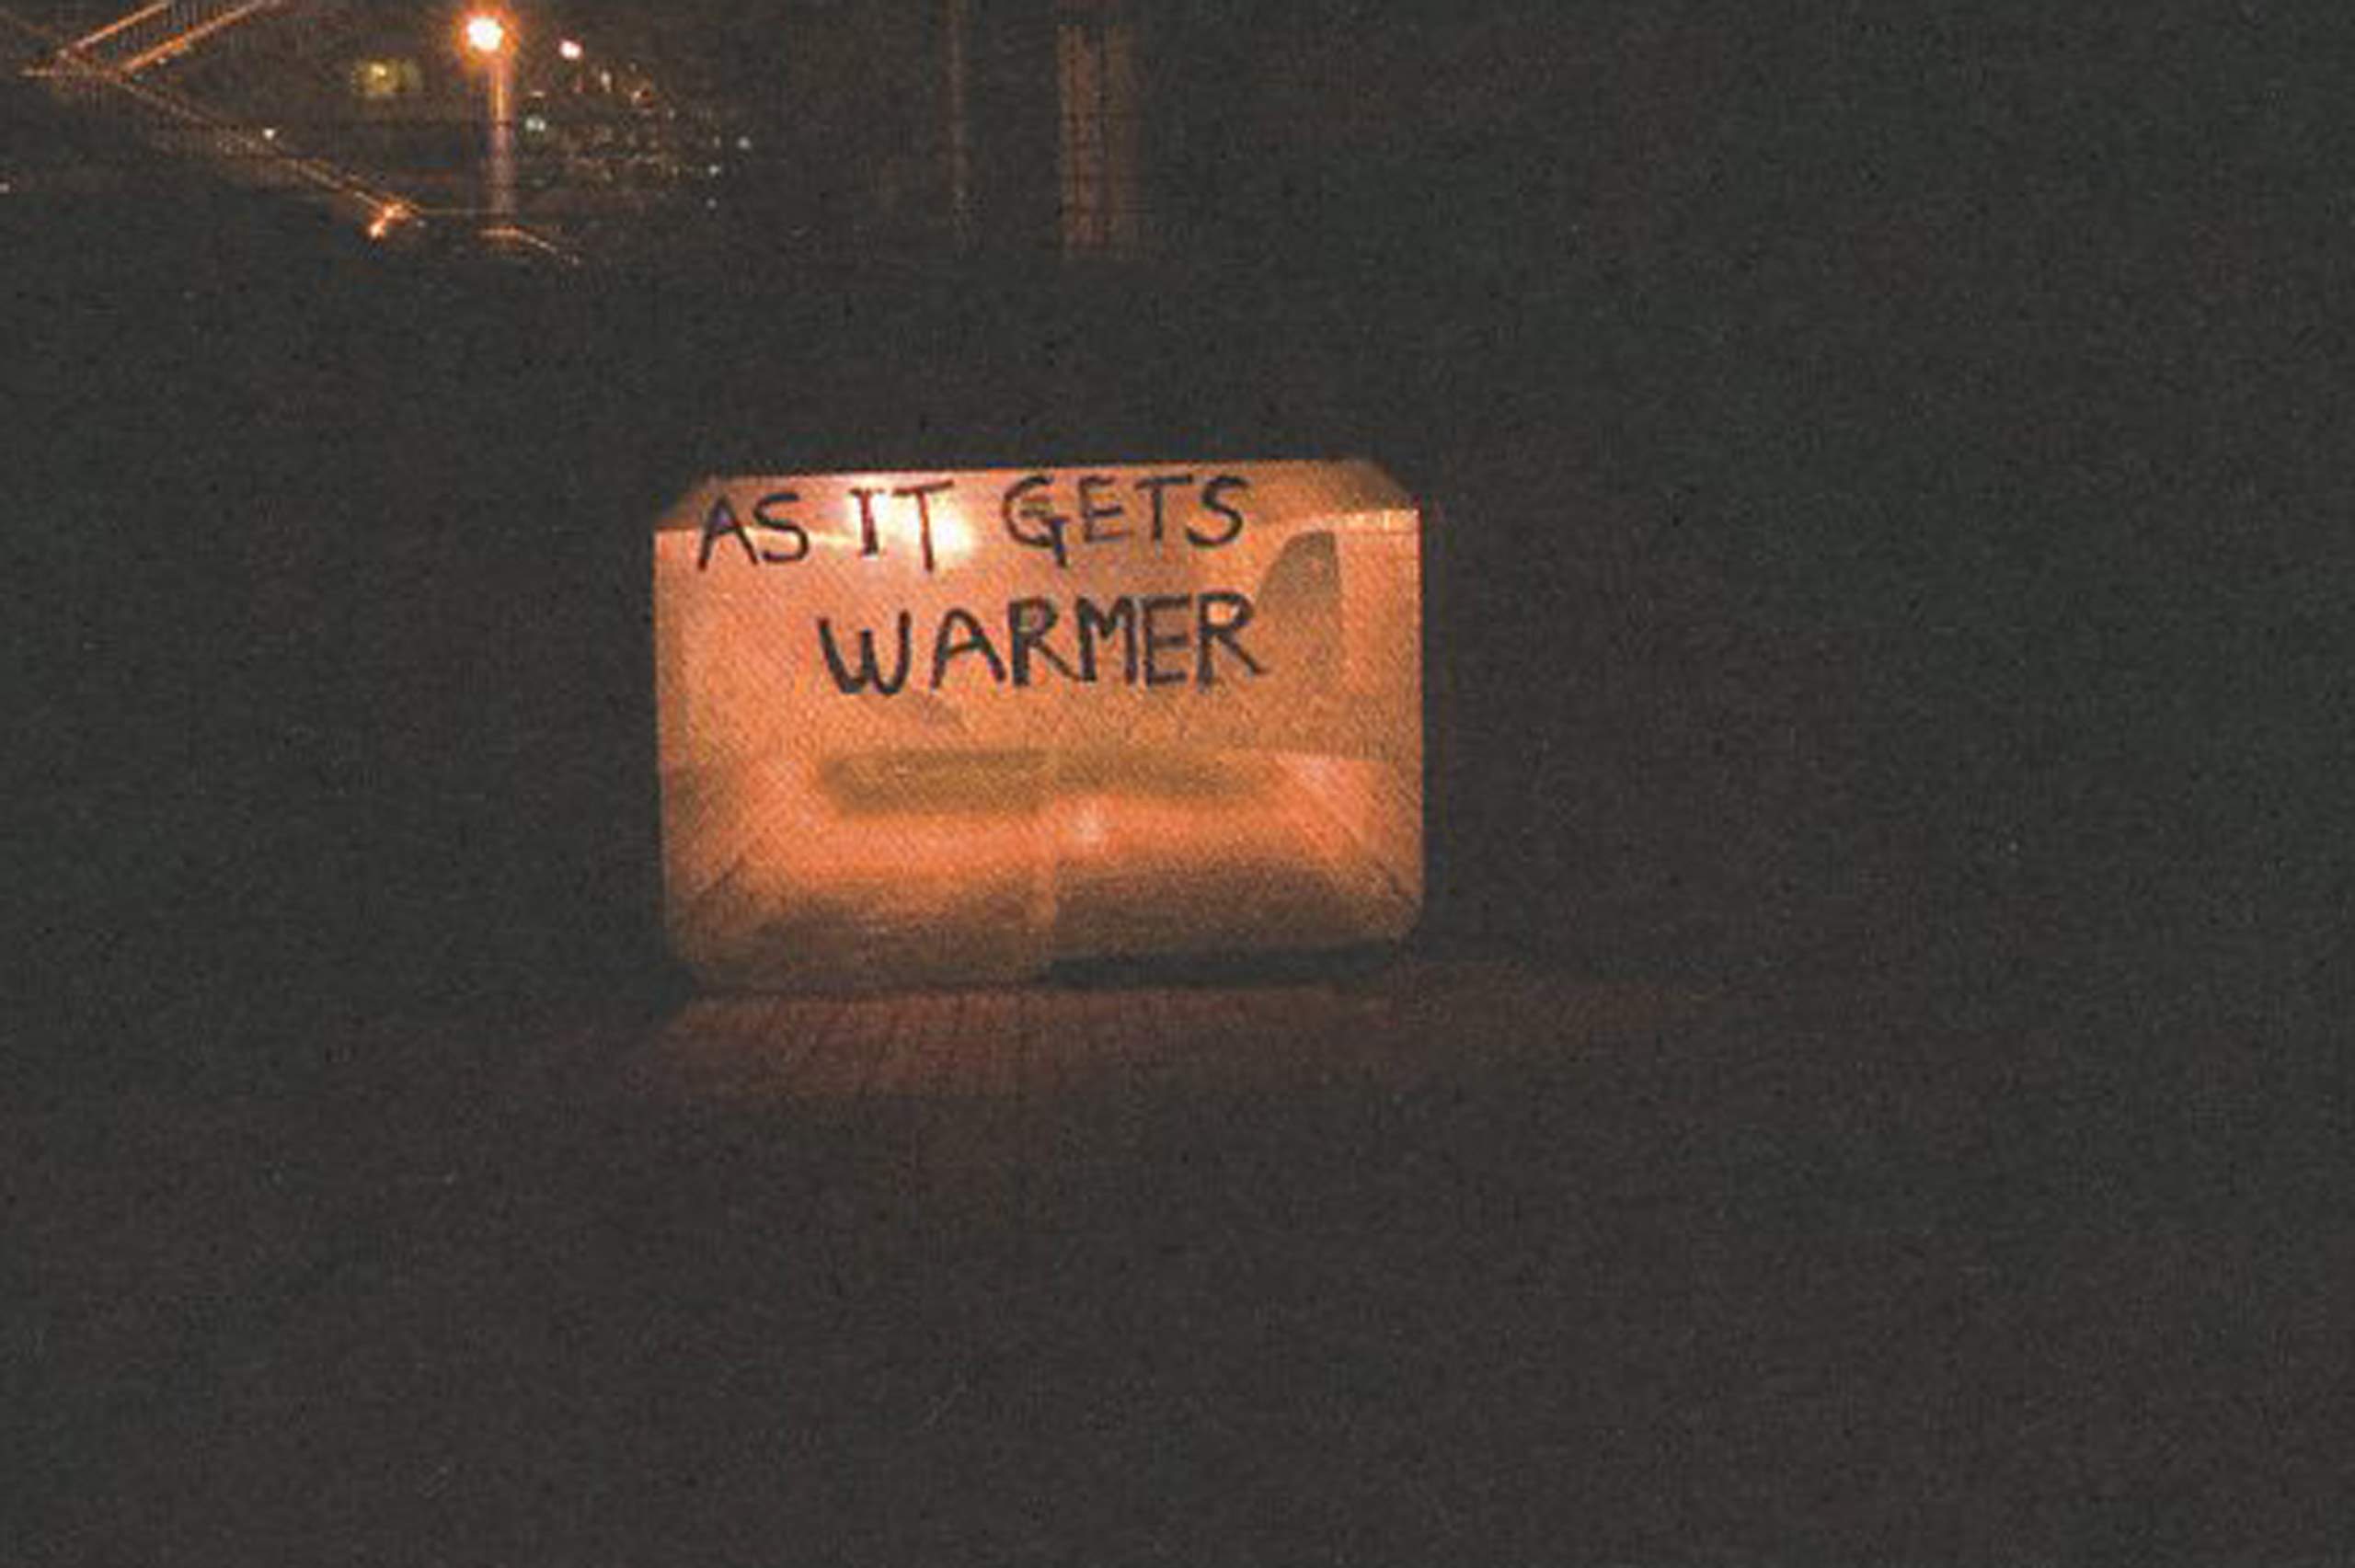 AS IT GETS
WARMER